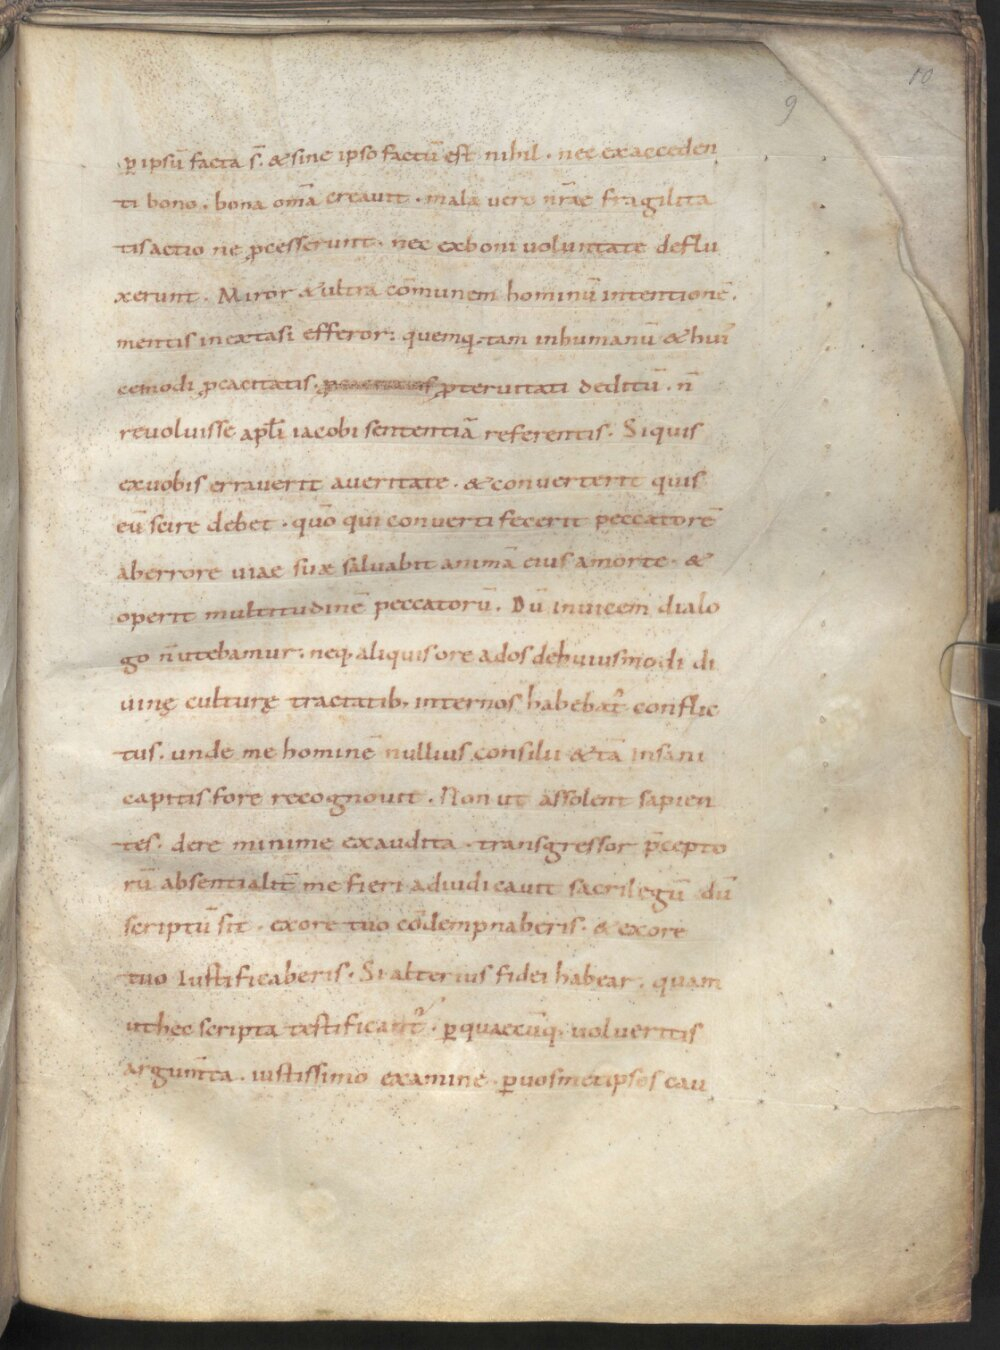 10
9
p̲ ipsū facta s̄. & sine ipso factū est nihil. nec ex acceden
ti bono. bona om̄a creavit. mala vero nr̄ae fragilita
tis actio ne ꝓcesserunt. nec ex boni voluntate deflu
xerunt. Miror & ultra cōmunem hominū intentionē.
mentis in extasi efferor. quemq. tam inhumanū & hui'
cemodi ꝓcacitatis. p̄teruitati deditū. n̄
revoluisse apl̄i iacobi sententiā referentis. Si quis
ex vobis erraverit a veritate. & converterit quis
eū scire debet. quō qui converti fecerit peccatorē
ab errore viae suae salvabit animā eius a morte. &
operit multitudinē peccatorū. Dū invicem dialo
go n̄ utebamur. neq. aliquis ore ad os de huiusmodi di
vinę culturę tractatib. inter nos habebat' conflic
tus. unde me hominē nullius consilii & tā insani
capitis fore recognovit. Non ut assolent sapien
tes. de re minime exaudita. transgressor p̄cepto
rū absentialit̄ me fieri adiudicavit sacrilegū dū
scriptū sit. ex ore tuo cōdempnaberis. & ex ore
tuo Iustificaberis. Si alterius fidei habear. quam
ut hec scripta testificant'. p̲ quaecūq. volveritis
argum̄ta. iustissimo examine. p̲ vosmetipsos cau